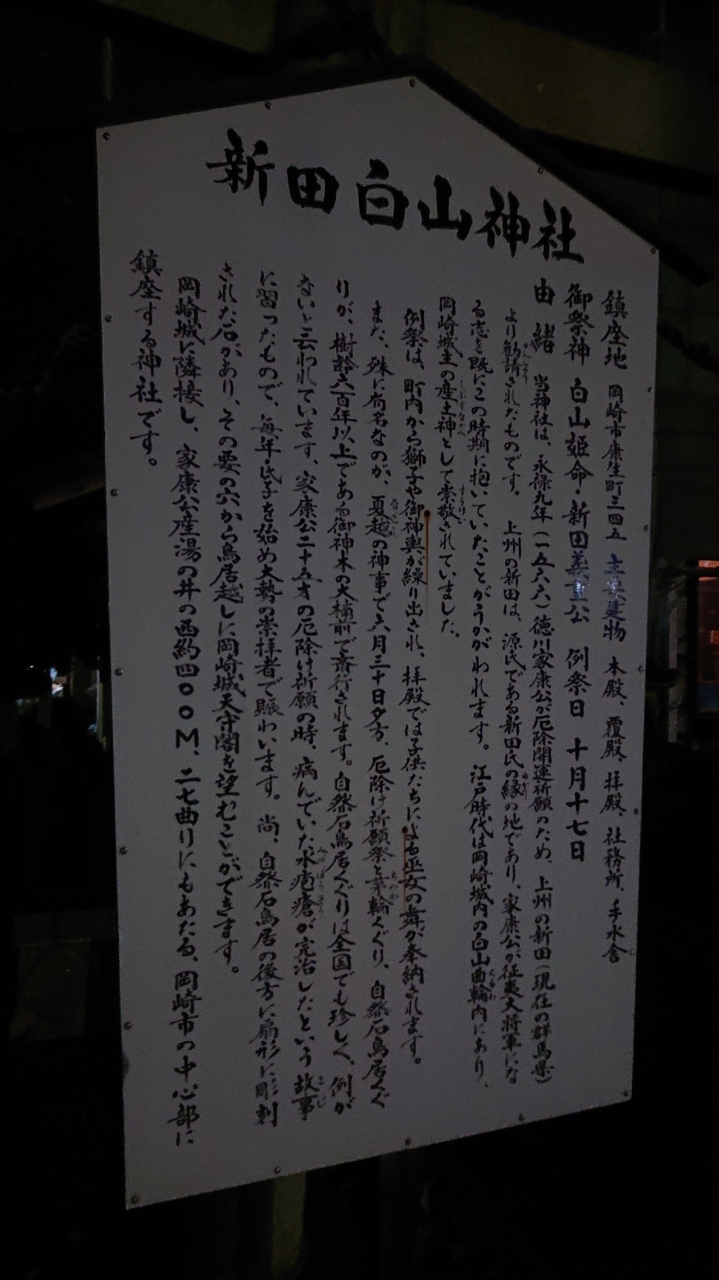 新田白山神社
鎮座地　岡崎市康生町三四五　主要建物　本殿、覆殿、拝殿、社務所、手水舎
御祭神　白山姫命・新田義重公　例祭日　十月十七日
由緒　当神社は、永禄九年（一五六六）徳川家康公が厄除開運祈願のため、上州の新田（現在の群馬県）
より勧請されたものです。上州の新田は、源氏である新田氏の縁の地であり、家康公が征夷大将軍にな
る志を既にこの時期に抱いていたことがうかがわれます。江戸時代は岡崎城内の白山曲輪内にあり、
岡崎城主の産土神として崇敬されていました。
例祭は、町内から獅子や御神輿が繰り出され、拝殿では子供たちによる巫女の舞が奉納されます。
また、殊に有名なのが、夏越の神事で六月三十日夕方、厄除け祈願祭と茅輪くぐり、自然石鳥居くぐ
りが、樹齢六百年以上である御神木の大楠前で斎行されます。自然石鳥居くぐりは全国でも珍しく、例が
ないと云われています。家康公二十五才の厄除け祈願の時、病んでいた水疱瘡が完治したという故事
に習ったもので、毎年、氏子を始め大勢の崇拝者で賑わいます。尚、自然石鳥居の後方に扇形に彫刻
された石があり、その要の穴から鳥居越しに岡崎城天守閣を望むことができます。
岡崎城に隣接し、家康公産湯の井の西約四〇〇M、二七曲りにもあたる、岡崎市の中心部に
鎮座する神社です。